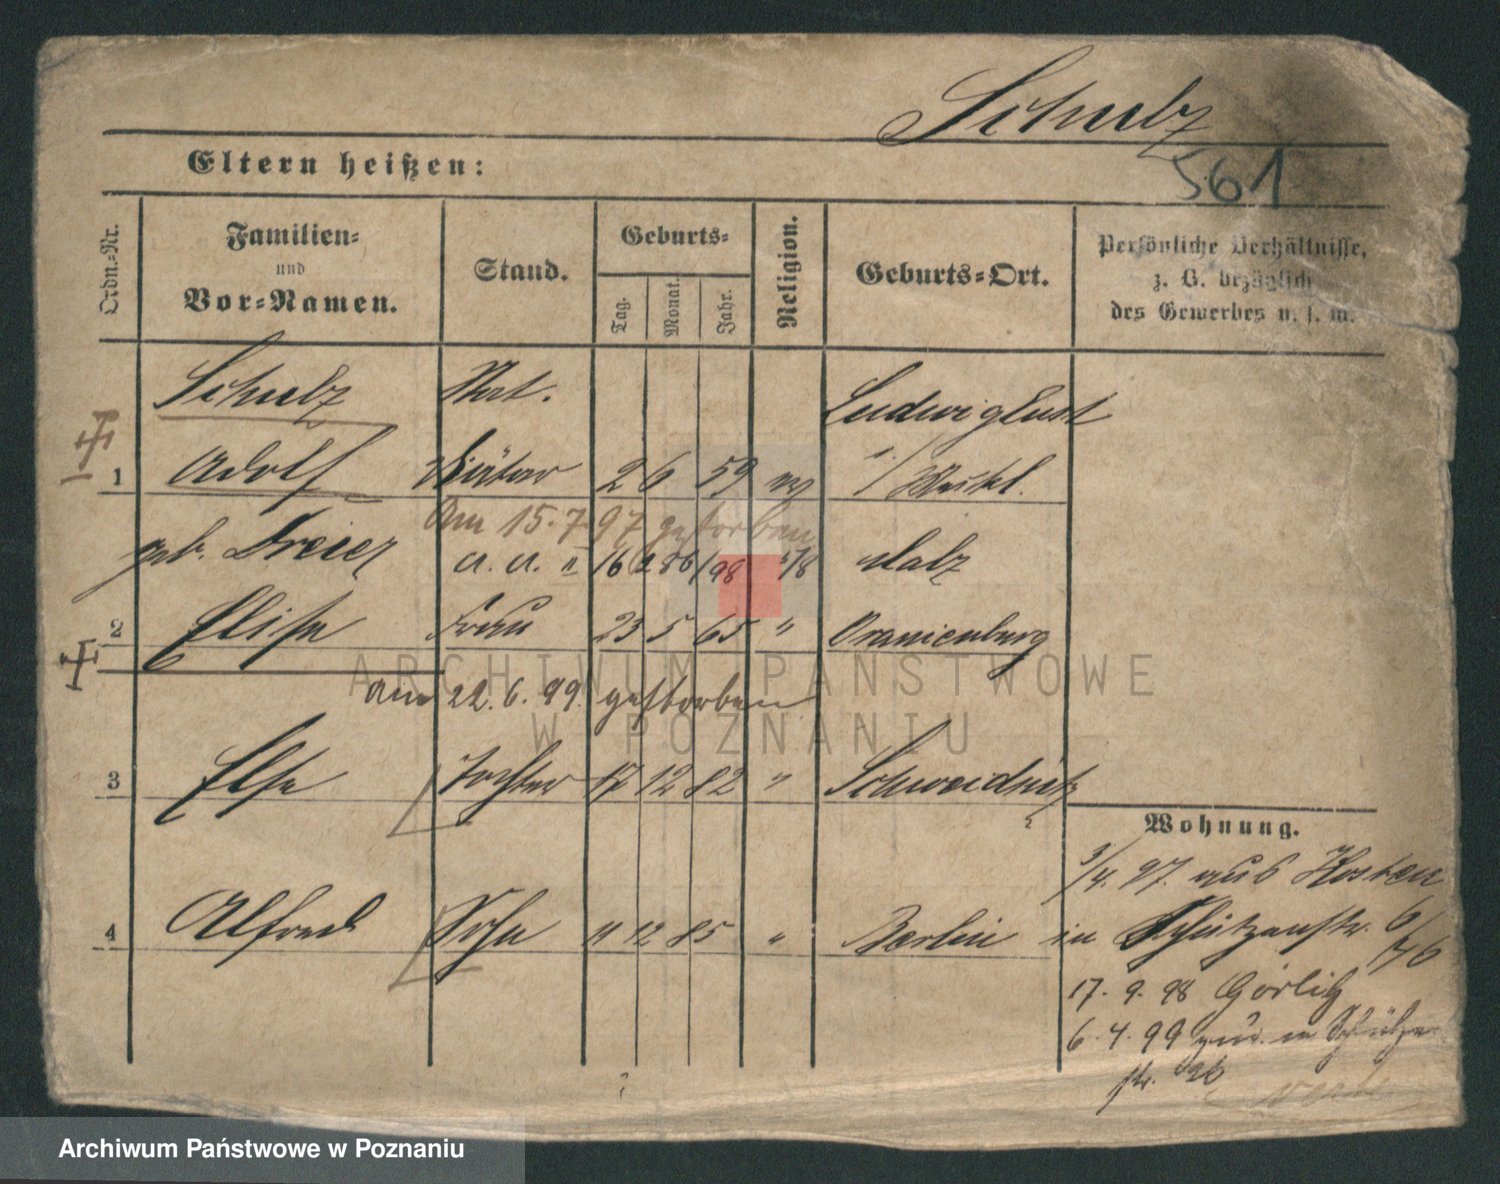 Schulz
561
Eltern heißen:
Ordn.-Nr.
Familien-
und
Vor-Namen.
Stand.
Geburts-
Tag.
Monat.
Jahr.
Religion.
Geburts-Ort.
Persönliche Verhältnisse,
z. B. bezüglich
des Gewerbes u. s. w.
Schulz
Ludwiglust
1 Adolf 2 6 59
Am 15.7.97 gestorben
geb. Dreier
2 Elise Frau 23 5 65 " Oranienburg
am 22.6.99. gestorben
3 Else Tochter 17 12 82 " Schweidnitz
4 Alfred Sohn 11 12 85 " Berlin
Wohnung.
3/4. 97. aus Kosten
in Schützenstr. 6/
17. 9. 98 Görlitz
6. 4. 99 zur. in Schütze
str. 26
ARCHIWUM PAŃSTWOWE
W POZNANIU
Archiwum Państwowe w Poznaniu